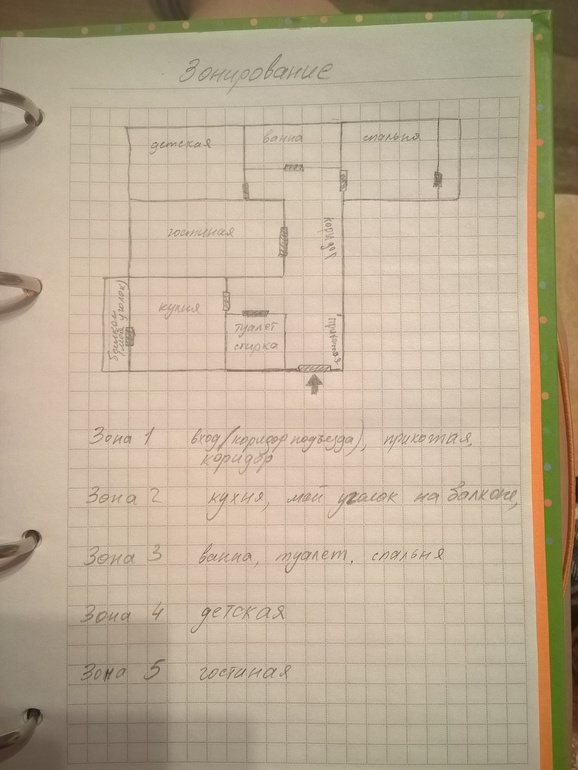 Зонирование
детская
ванна
спальня
гостиная
коридор
кухня
балкон
(мой уголок)
туалет
стирка
прихожая
Зона 1 вход (коридор подъезда), прихожая,
коридор
Зона 2 кухня, мой уголок на балконе,
Зона 3 ванна, туалет, спальня
Зона 4 детская
Зона 5 гостиная